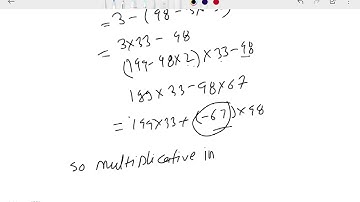 = 3 - (98 -
= 3×33 - 98
(199-98×2)×33-98
189×33-98×67
= 199×33+(-67)×98
so multiplicative in